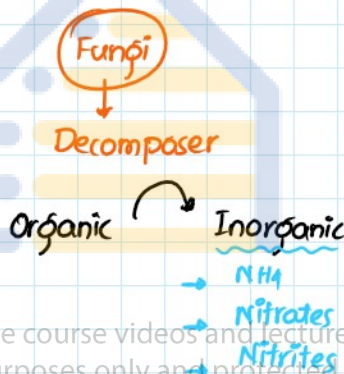 Fungi
Decomposer
Organic Inorganic
→ NH4
→ Nitrates
e course videos and lecture
→ Nitrites
rposes only and protected